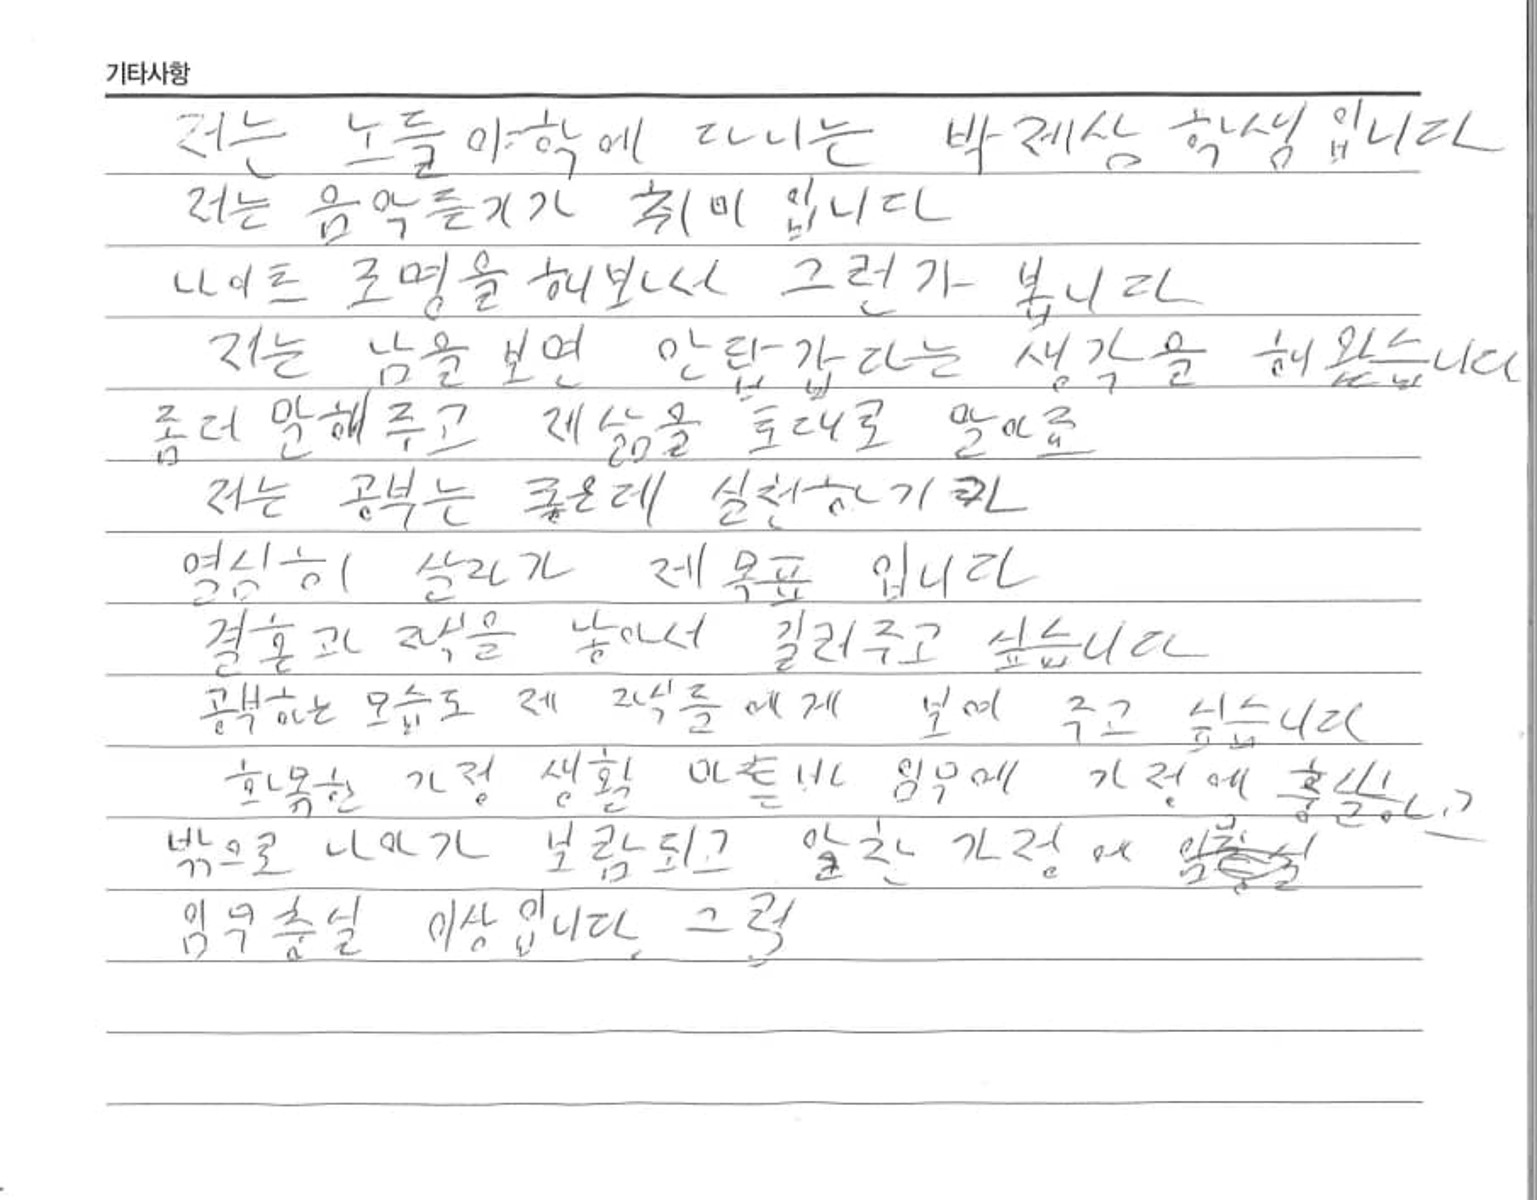 기타사항
저는 노들야학에 다니는 박제상 학생입니다
저는 음악듣기가 취미 입니다
나이트 조명을 해보서 그런가 봅니다
저는 남을 보면 안탑갑다는 생각을 해왔습니다
좀더 말해주고 제 삶을 토대로 말이죠
저는 공부는 좋은데 실천하기
열심히 살라가 제 목표 입니다
결혼과 자식을 낳아서 길러주고 싶습니다
공부하는 모습도 제 자식들에게 보여 주고 싶습니다
화목한 가정 생활 마튼바 임무에 가정에 충실하고
밖으로 나아가 보람되고 알찬 가정에
임무충실 이상입니다.